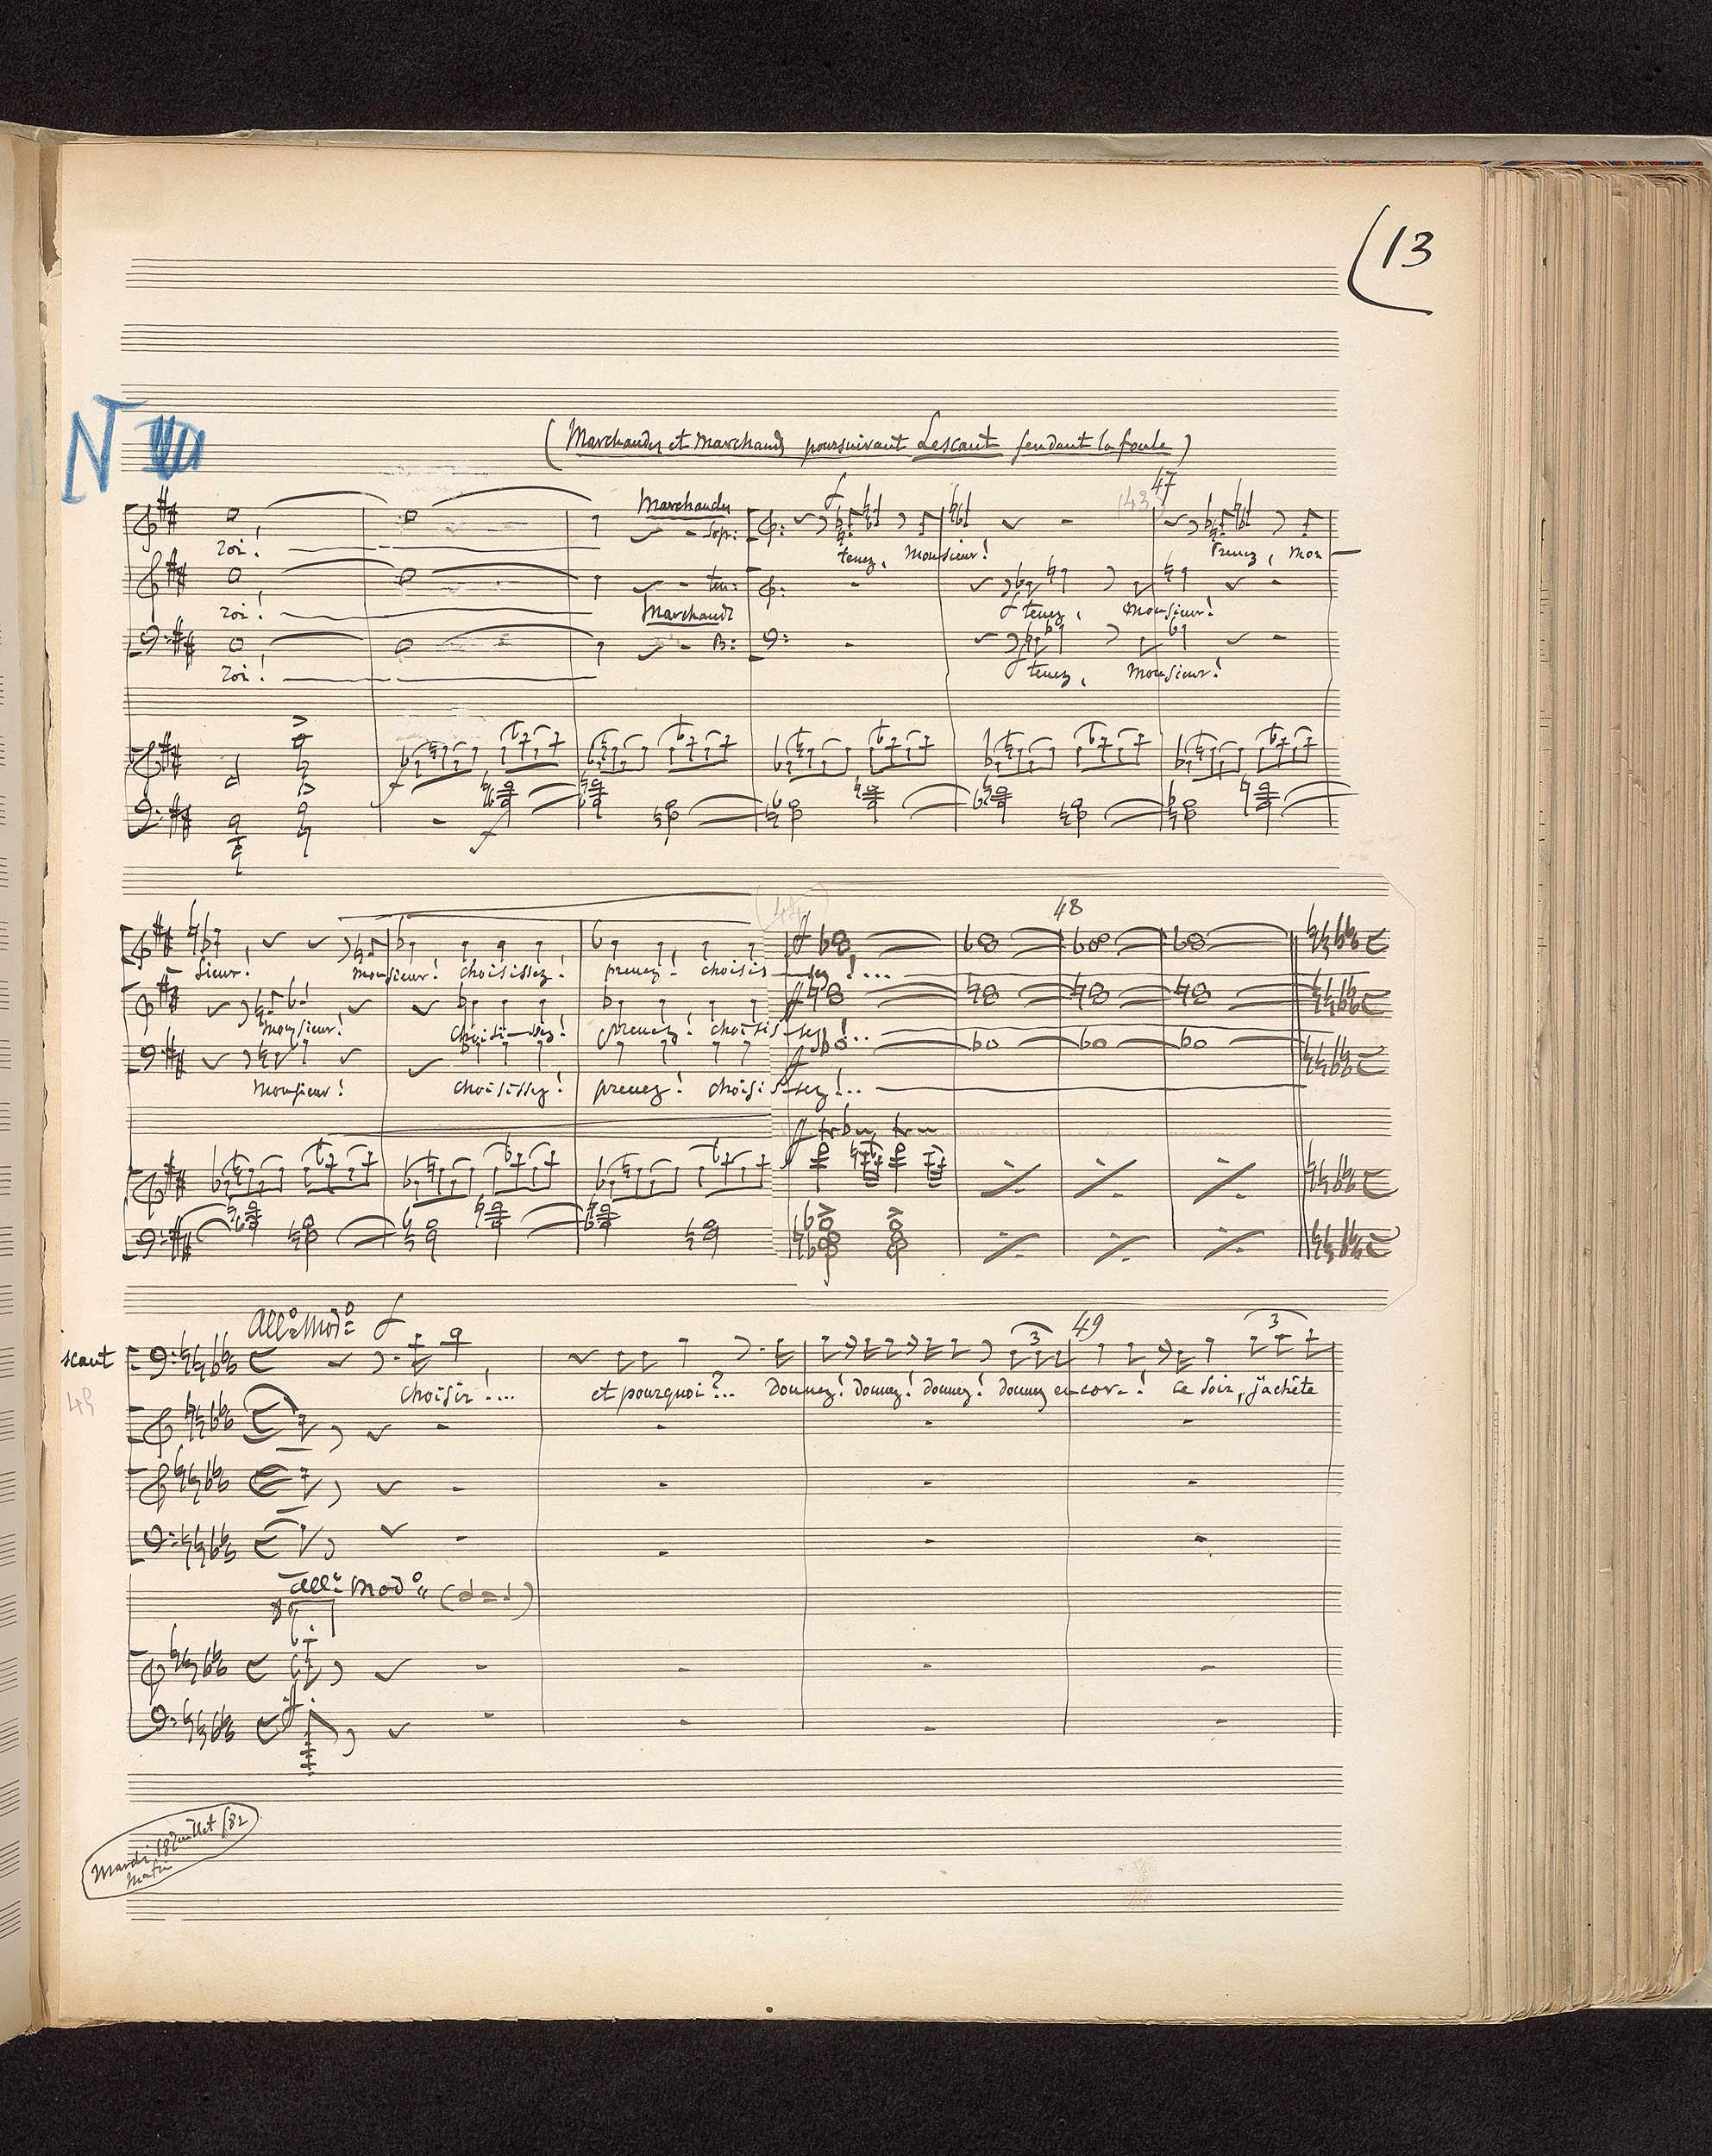 13
N
(Marchandes et Marchands poursuivant Lescaut fendant la foule)
47
Marchandes
Sop:
f
roi!
tenez, Monsieur!
Prenez, Mon
ten:
roi!
f tenez, Monsieur!
Marchands
B:
roi!
f tenez, Monsieur!
f
f
44
48
sieur! Monsieur! choisissez! prenez! choisis-sez!...
Monsieur! choisissez! prenez! choisissez!...
Monsieur! choisissez! prenez! choisissez!..
ff
All° Mod° f
49
3
3
scaut
choisir!... et pourquoi?... Donnez! donnez! donnez! donnez encor-! ce soir, j'achète
45
All° Mod°
Mardi 18 Juillet /82
Matin